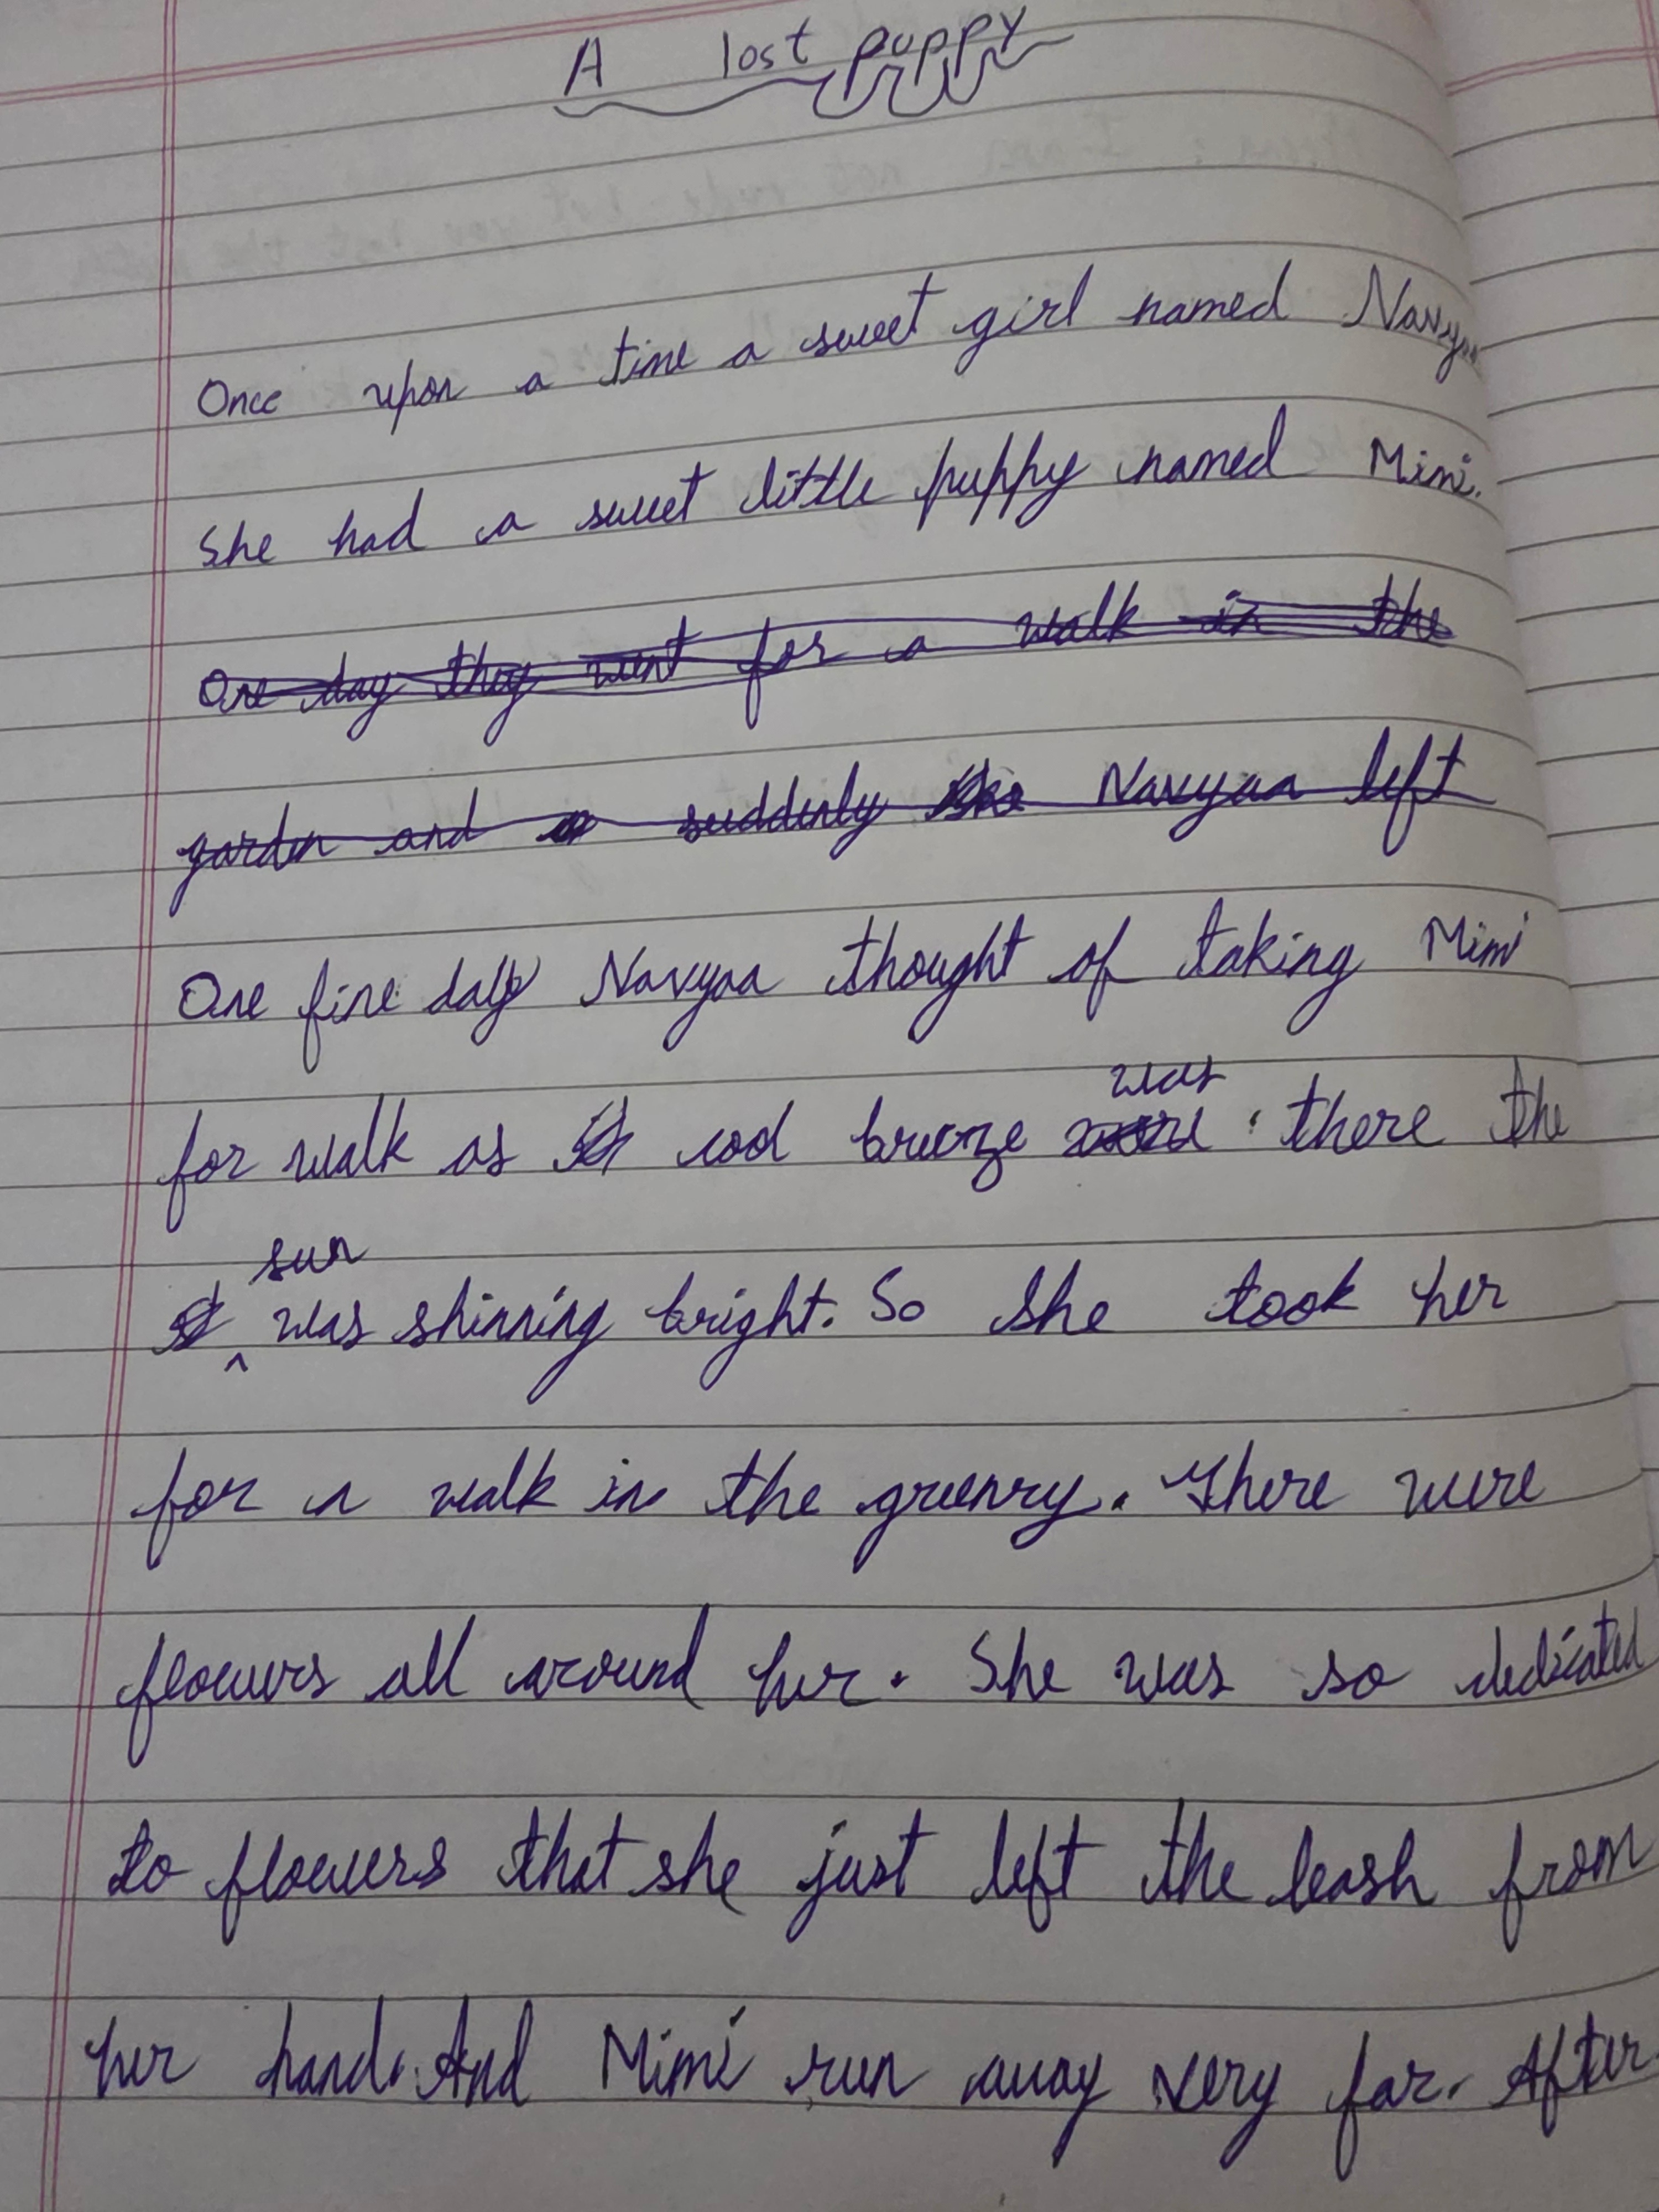 A lost puppy
Once upon a time a sweet girl named Navyaa
She had a sweet little puppy named Mimi.
One day they went for a walk in the
garden and suddenly she Navyaa left
One fine day Navyaa thought of taking Mimi
for walk as cool breeze was there the
sun
was shinning bright. So she took her
for a walk in the greenry. There were
flowers all around her. She was so dedicated
to flowers that she just left the leash from
her hand. And Mimi run away very far. After